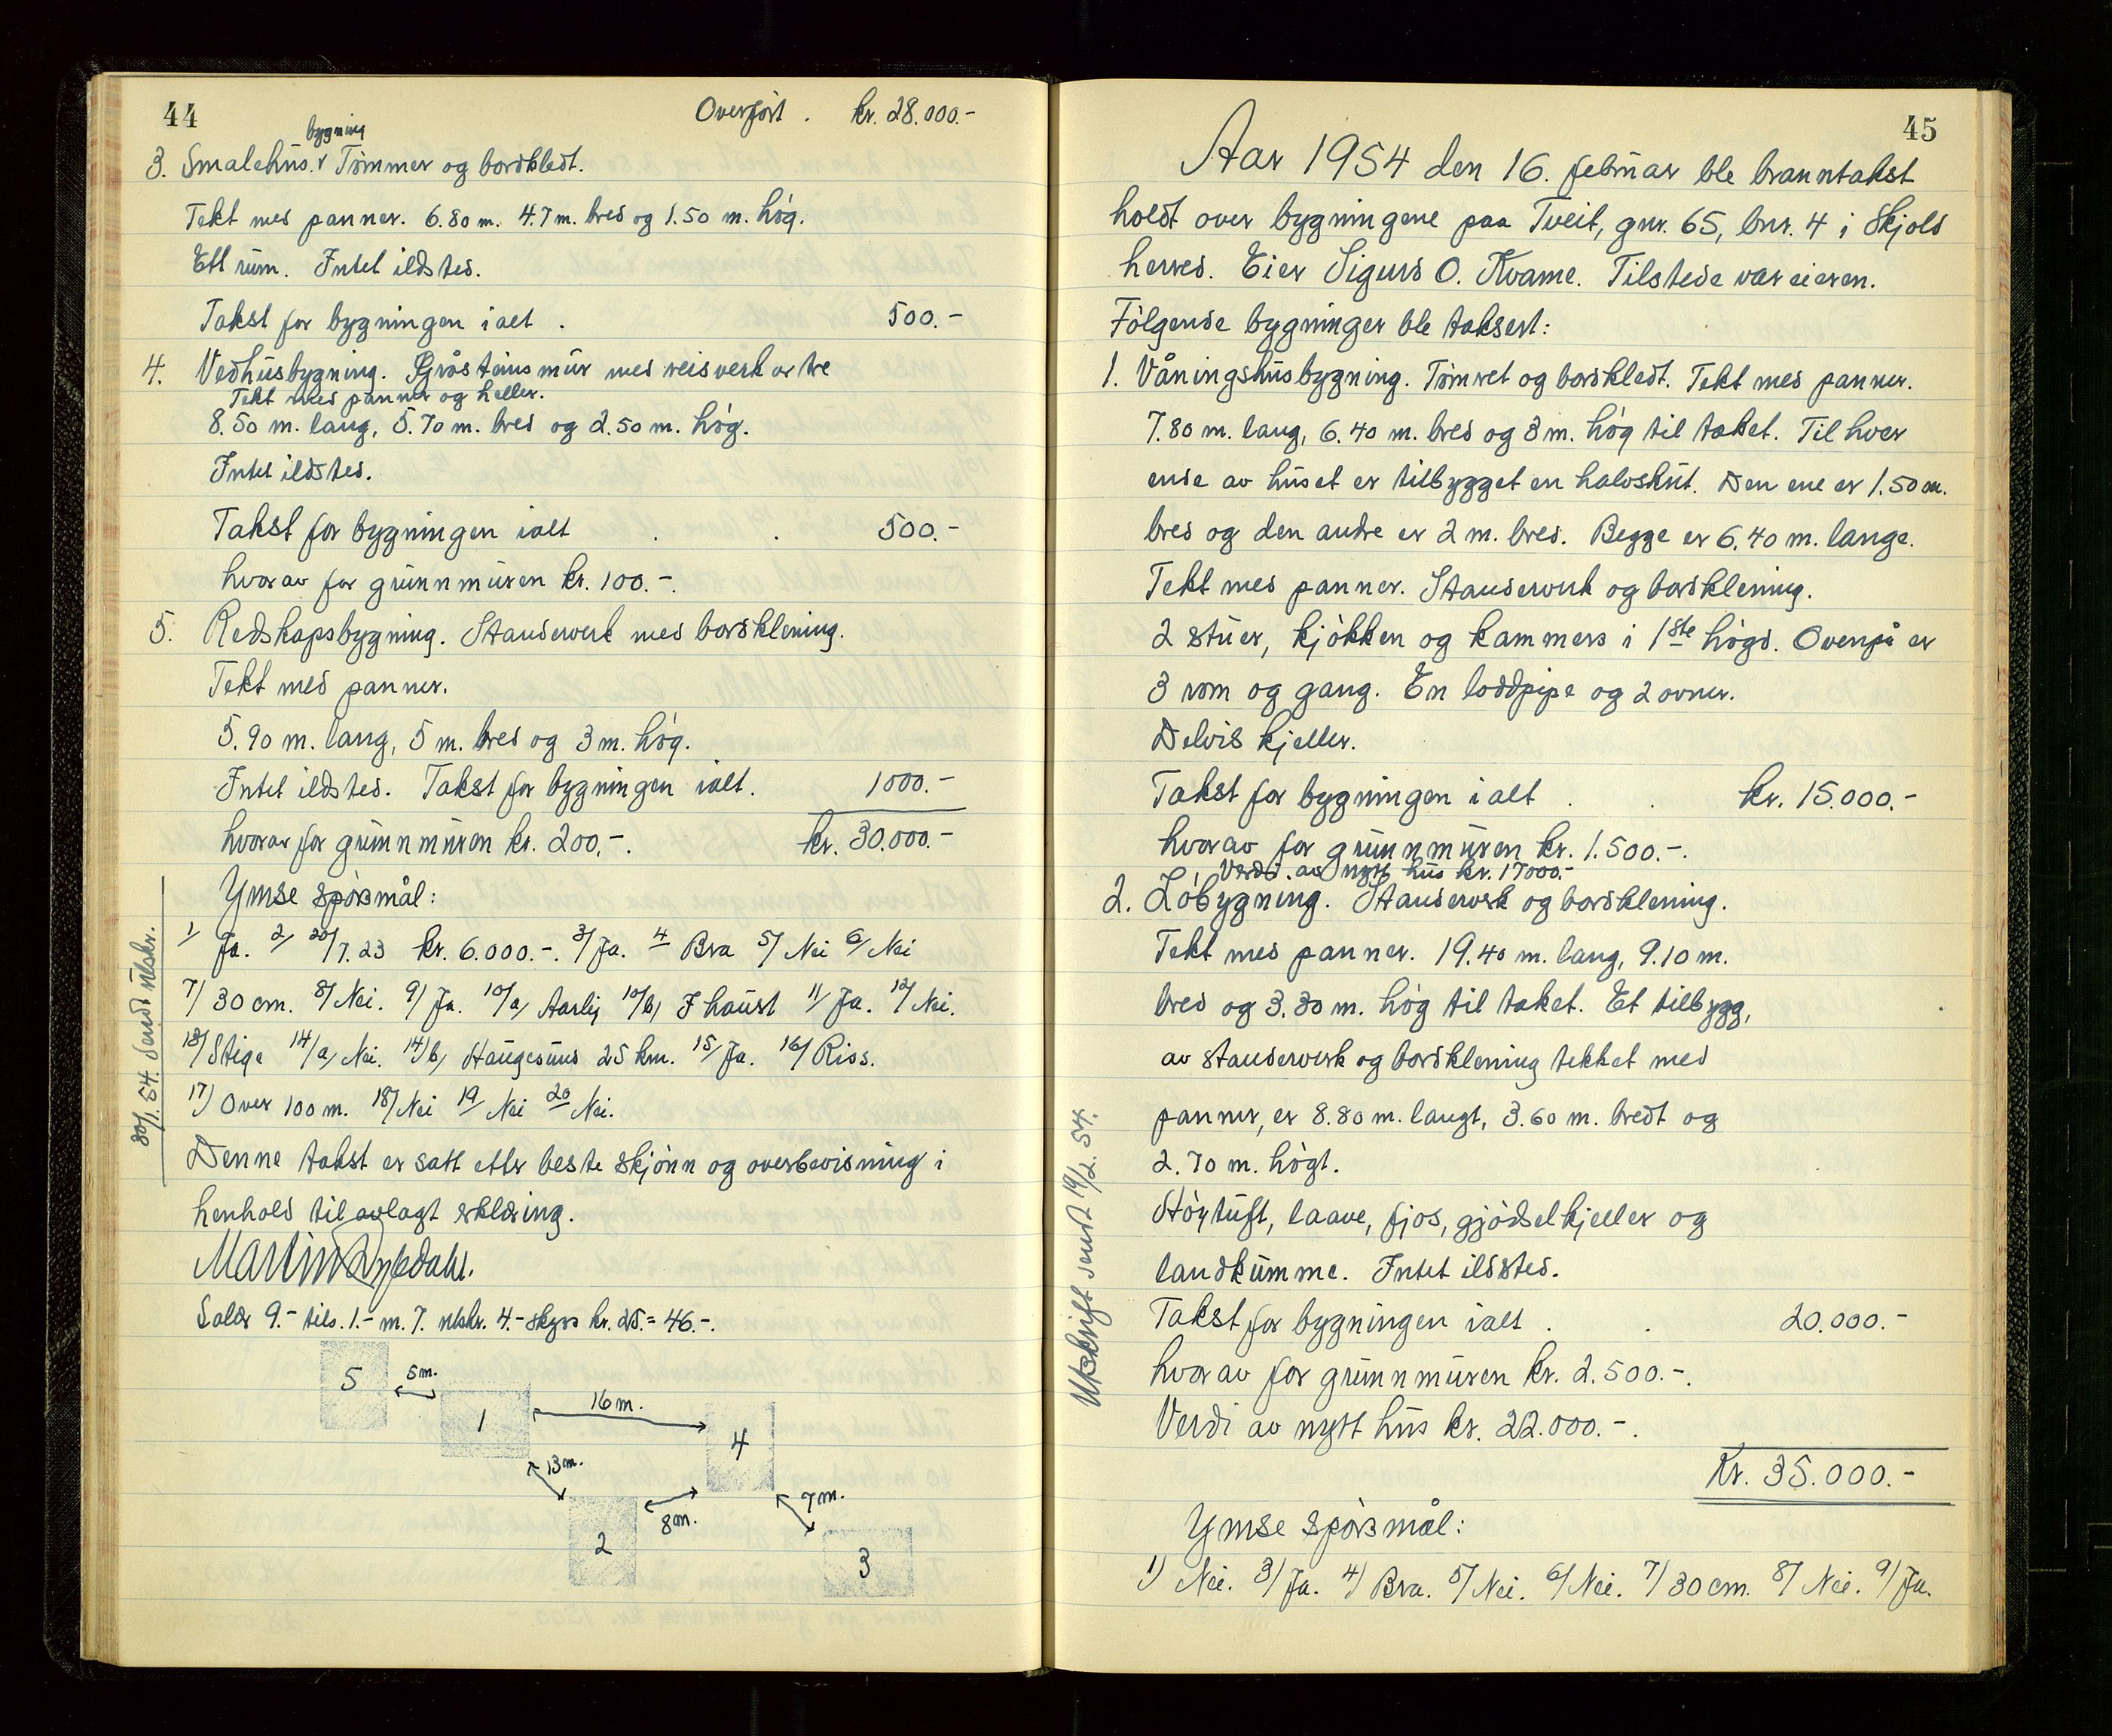 44
Overført . kr. 28.000.-
bygning
3. Smalehus. v Tømmer og bordkledt.
Tekt med panner. 6.80 m. 4.7 m. bred og 1.50 m. høg.
Ett rum. Intet ildsted.
Takst for bygningen ialt . 500.-
4. Vedhusbygning. Gråsteinsmur med reisverk av tre
Tekt med panner og heller.
8.50 m. lang, 5.70 m. bred og 2.50 m. høg.
Intet ildsted.
Takst for bygningen ialt . . 500.-
hvorav for grunnmuren kr. 100.-.
5. Redskapsbygning. Standerverk med bordkledning.
Tekt med panner.
5.90 m. lang, 5 m. bred og 3 m. høg.
Intet ildsted. Takst for bygningen ialt. 1000.-
hvorav for grunnmuren kr. 200.-. kr. 30.000.-
Ymse spørsmål:
1/ Ja. 2/ 20/7.23 kr. 6.000.-. 3/ Ja. 4 Bra 5/ Nei 6/ Nei
7/ 30 cm. 8/ Nei. 9/ Ja. 10/a, Aarlig 10/b, I haust 11/ Ja. 12/ Nei.
13/ Stige 14/a, Nei. 14/b, Haugesund 25 km. 15/ Ja. 16/ Riss.
17/ Over 100 m. 18/ Nei 19 Nei 20 Nei.
30/1.54. Sendt utskr.
Denne takst er satt etter beste skjønn og overbevisning i
henhold til avlagt erklæring.
Salær 9.- tils. 1.- m. 7. utskr. 4.- skyss kr. 25.= 46.-.
5 5 m. 1 16 m. 4
13 m. 8 m. 7 m.
2 3
45
Aar 1954 den 16. februar ble branntakst
holdt over bygningene paa Tveit, gnr. 65, bnr. 4 i Skjold
herred. Eier Sigurd O. Kvame. Tilstede var eieren.
Følgende bygninger ble taksert:
1. Våningshusbygning. Tømret og bordkledt. Tekt med panner.
7.80 m. lang, 6.40 m. bred og 3 m. høg til taket. Til hver
ende av huset er tilbygget en halvskut. Den ene er 1.50 m.
bred og den andre er 2 m. bred. Begge er 6.40 m. lange.
Tekt med panner. Standerverk og bordkledning.
2 stuer, kjøkken og kammers i 1ste høgd. Ovenpå er
3 rom og gang. En loddpipe og 2 ovner.
Delvis kjeller.
Takst for bygningen i alt . . kr. 15.000.-
hvorav for grunnmuren kr. 1.500.-.
Verdi av nytt hus kr. 17000.-
2. Løbygning. Standerverk og bordkledning.
Tekt med panner. 19.40 m. lang, 9.10 m.
bred og 3.30 m. høg til taket. Et tilbygg,
av standerverk og bordkledning tekket med
panner, er 8.80 m. langt, 3.60 m. bredt og
2.70 m. høgt.
Høytuft, laave, fjos, gjødselkjeller og
landkumme. Intet ildsted.
Takst for bygningen ialt . . 20.000.-
hvorav for grunnmuren kr. 2.500.-.
Verdi av nytt hus kr. 22.000.-.
Kr. 35.000.-
Utskrift sendt 19/2.54.
Ymse spørsmål:
1/ Nei. 3/ Ja. 4/ Bra. 5/ Nei. 6/ Nei. 7/ 30 cm. 8/ Nei. 9/ Ja.